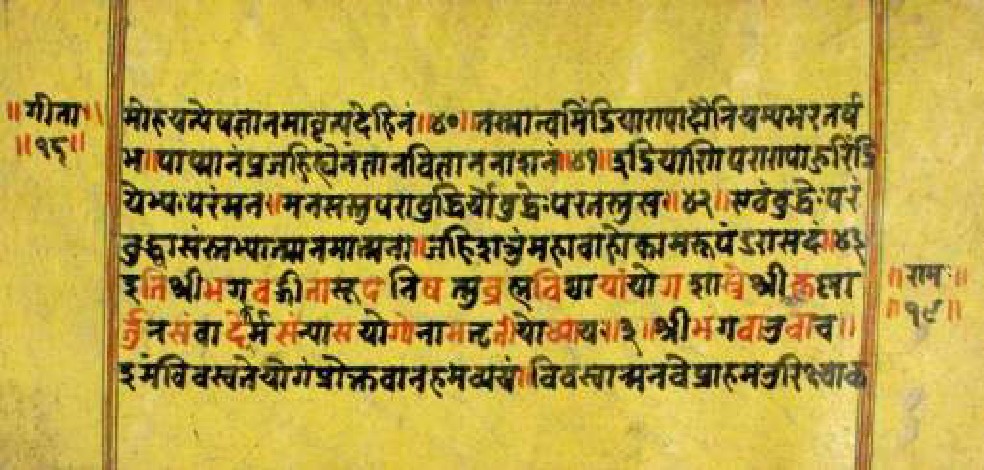 ॥गीता॥
॥१९॥
मोहयत्येषज्ञानमावृत्यदेहिनं॥४०॥तस्मात्त्वमिंद्रियाण्यादौनियम्यभरतर्ष
भ॥पाप्मानंप्रजहिह्येनंज्ञानविज्ञाननाशनं॥४१॥इंद्रियाणिपराण्याहुरिंद्रि
येभ्यःपरंमनः॥मनसस्तुपराबुद्धिर्योबुद्धेःपरतस्तुसः॥४२॥एवंबुद्धेःपरं
बुद्ध्वासंस्तभ्यात्मानमात्मना॥जहिशत्रुंमहाबाहोकामरूपंदुरासदं॥४३
इतिश्रीभगवद्गीतासूपनिषत्सुब्रह्मविद्यायांयोगशास्त्रेश्रीकृष्णा
र्जुनसंवादेकर्मसंन्यासयोगोनामतृतीयोध्यायः॥३॥श्रीभगवानुवाच॥
इमंविवस्वतेयोगंप्रोक्तवानहमव्ययं॥विवस्वान्मनवेप्राहमनुरिक्ष्वाक
॥रामः॥
॥१९॥